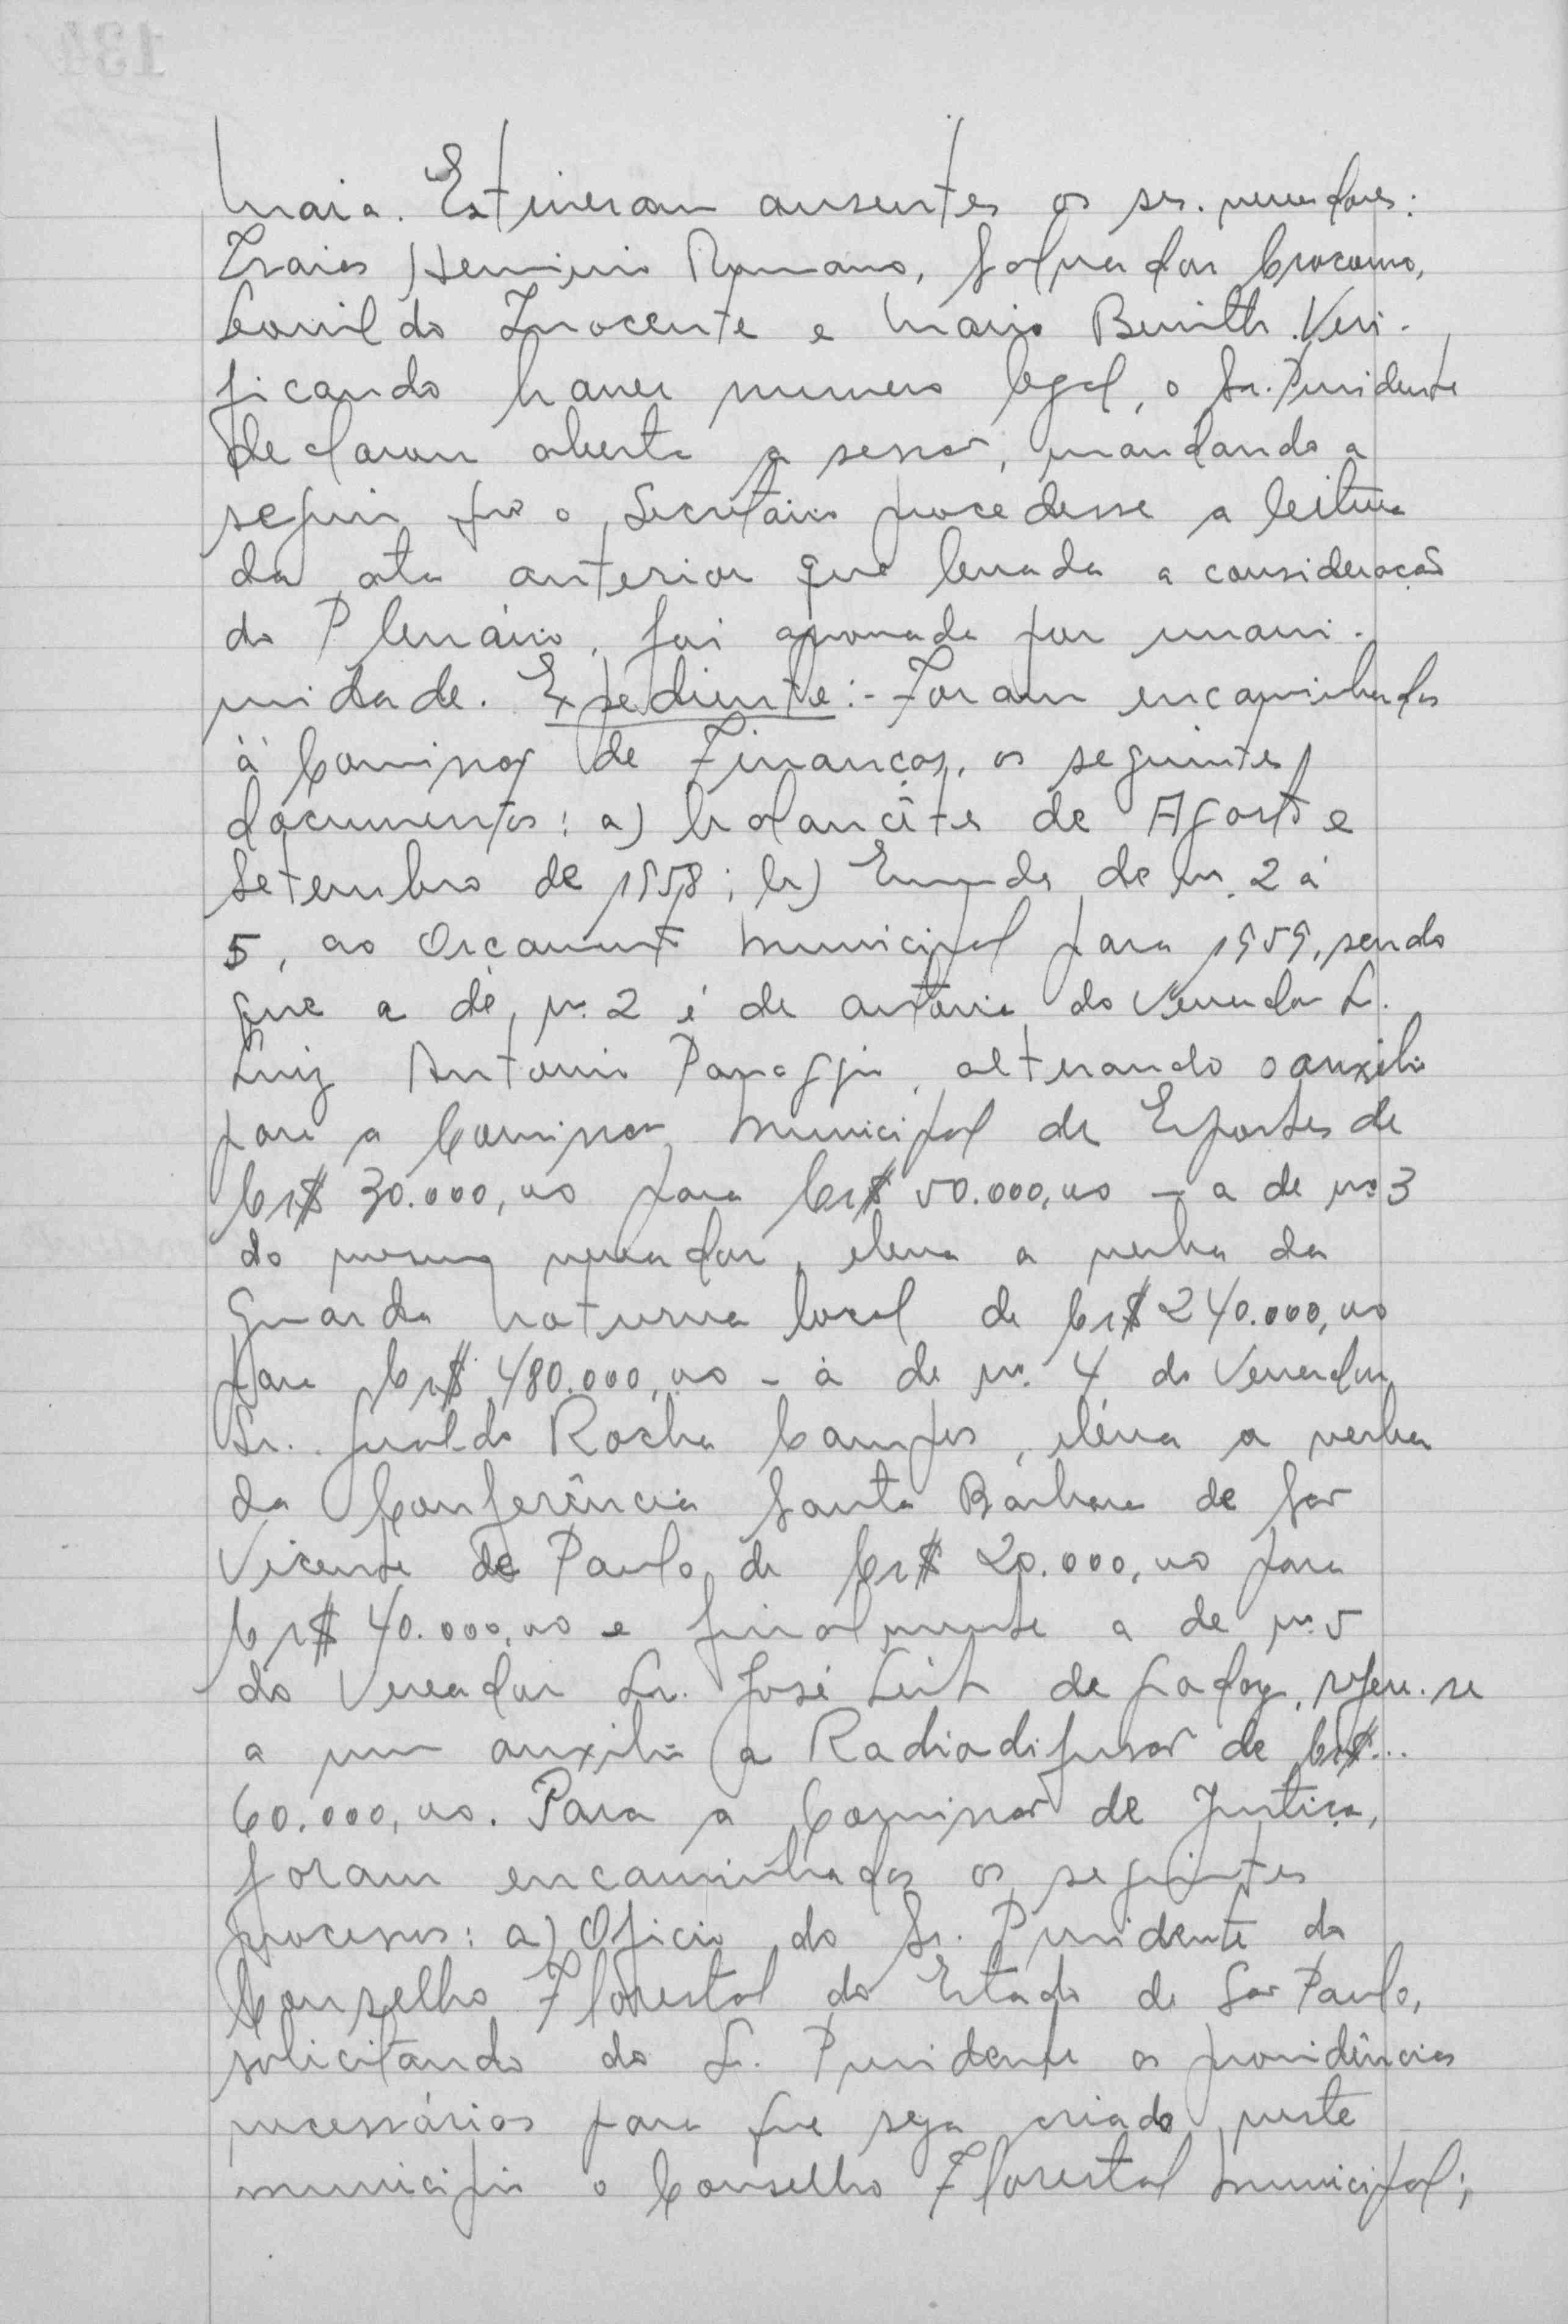 Maia. Estiveram ausentes os srs. vereadores:
Isaias Herminio Romano, Salvador
Leonildo Inocente e Mario . Veri-
ficando haver numero legal, o Sr. Presidente
declarou aberta a sessão, mandando a
seguir que o Secretário procedesse a leitura
da ata anterior que levada a consideração
do Plenário, foi aprovada por unani-
midade. Expediente:- Foram encaminhados
à Comissão de Finanças, os seguintes
documentos: a) balancêtes de Agosto e
Setembro de 1958; b) Emenda de nº. 2 á
5, ao Orçamento Municipal para 1959, sendo
que a de nº. 2 é de autoria do Vereador Sr.
Luiz Antonio Panaggio, alterando o auxilio
para a Comissão Municipal de Esportes de
Cr$ 30.000,00 para Cr$ 50.000,00 - a de nº 3
do mesmo vereador, eleva a verba da
Guarda Noturna local de Cr$ 240.000,00
para Cr$ 480.000,00 - a de nº. 4 do Vereador
Sr. Geraldo Rocha Campos, eléva a verba
da Conferência Santa Barbara de São
Vicente de Paulo, de Cr$ 20.000,00 para
Cr$ 40.000,00 e finalmente a de nº. 5
do Vereador Sr. José Leite de Godoy, refere-se
a um auxilio a Radiodifusão de Cr$...
60.000,00. Para a Comissão de Justiça,
foram encaminhados os seguintes
processos: a) Oficio do Sr. Presidente do
Conselho Florestal do Estado de São Paulo,
solicitando do Sr. Presidente as providências
necessárias para que seja criado neste
municipio o Conselho Florestal Municipal;
134